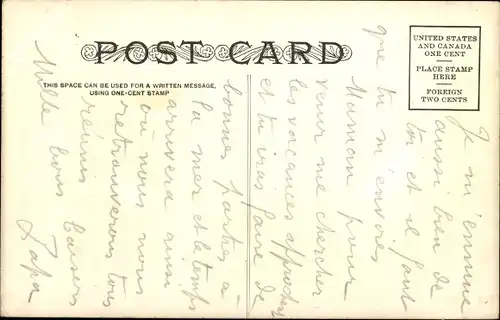 POST CARD
THIS SPACE CAN BE USED FOR A WRITTEN MESSAGE,
USING ONE-CENT STAMP
UNITED STATES
AND CANADA
ONE CENT
PLACE STAMP
HERE
FOREIGN
TWO CENTS
Je m'ennuie
aussi bien de
toi et il faut
que tu m'envoies
Maman pour
venir me chercher
les vacances approchent
et tu iras faire de
bonnes parties à
la mer et le temps
arrivera ainsi
où nous nous
retrouverons tous
réunis
Mille bons Baisers
Papa